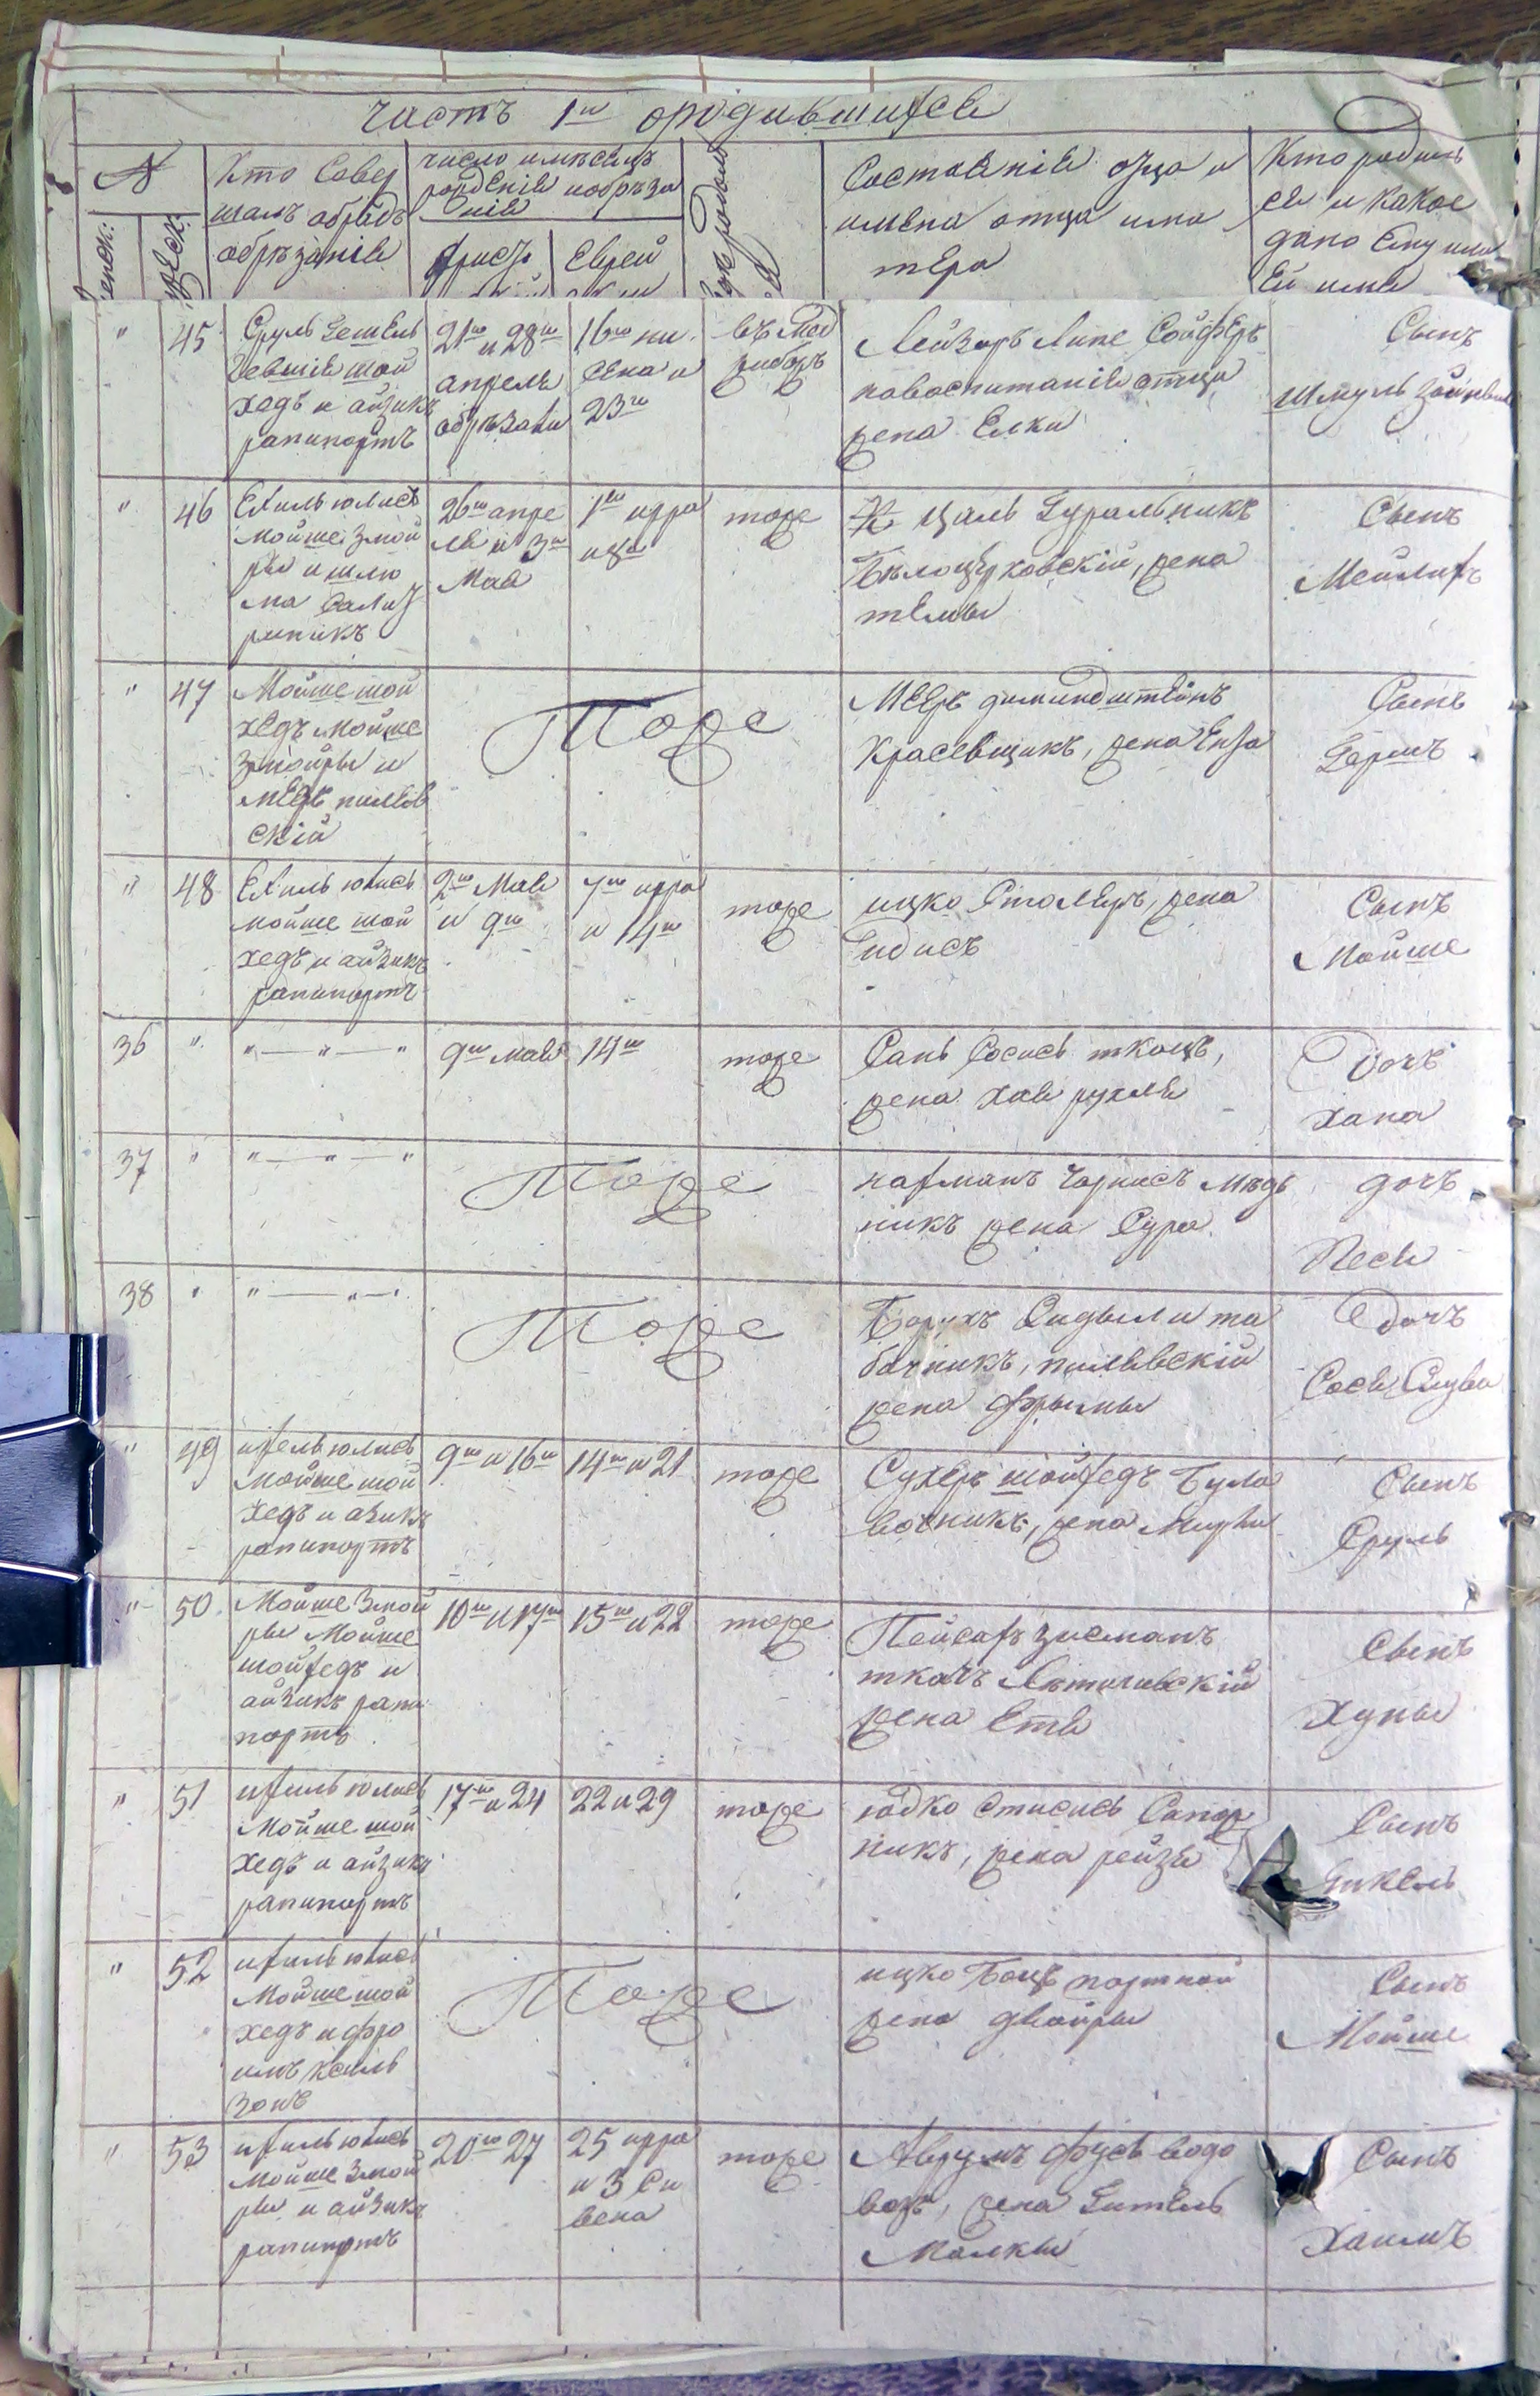 часть 1я ородившихся
№
Кто совер
шалъ обрядъ
обрѣзанія
число и мѣсяцъ
рожденія и обрѣза
нія
Еврей
Состояніе отца и
имена отца и ма
тери
Кто родил
ся и какое
дано Ему или
Ей имя
" 45
Сруль
шой
хедъ и айзикъ
рапипортъ
21го и 28го
апреля
обрѣзаны
16го ни
сена и
23го
въ Мед
Лейзоръ Липе Сойферъ
на воспитаніе отца
жена Елки
Сынъ
Шмуль
" 46
Ехиль юлисъ
Мойше Змой
ры и шлю
ма
26го апре
ля и 3го
Мая
1го ирра
тоже
Циль Гуральникъ
Бѣлоцерковскій, жена
темы
Сынъ
Мейлихъ
" 47
Мойше шой
хедъ Мойше
Змойры и
меръ пиляв
скій
Тоже
Мееръ димандштейнъ
Красевщикъ, жена Ента
Сынъ
Гершъ
" 48
Ехиль юлисъ
мойше шой
хедъ и айзикъ
рапипортъ
2го Мая
и 9го
7го ирра
и 14го
тоже
ицко Столяръ, жена
Гидисъ
Сынъ
Мойше
36 "
" — " — "
9го мая
14го
тоже
Сань Сосисъ ткачъ,
жена Хая рухля
Дочъ
Хана
37 "
" — " — "
Тоже
нахманъ Чорнисъ Мѣдъ
никъ жена Сура
дочъ
Песя
38 "
" — " — "
Тоже
Борухъ та
бачникъ, пилявскій
жена фрымы
дочъ
Сося Слува
" 49
ихель юлисъ
Мойше шой
хедъ и азикъ
рапипортъ
9го и 16го
14го и 21
тоже
Сухеръ шойхедъ Була
вочникъ, жена Мирля
Сынъ
Сруль
" 50
Мойше Змой
ры Мойше
шойхедъ и
айзикъ рапи
портъ
10го и 17го
15го и 22
тоже
Пейсахъ зисманъ
ткачъ Лѣтичевскій
жена Етя
Сынъ
Хуны
" 51
ихиль юлисъ
Мойше шой
хедъ и айзикъ
рапипортъ
17го и 24
22 и 29
тоже
юдко Стисисъ Сапож
никъ, жена рейзя
Сынъ
" 52
ихиль юлисъ
Мойше шой
хедъ и фро
имъ кейль
зонъ
Тоже
ицко Боцъ портной
жена двойры
Сынъ
Мойше
" 53
ихиль юлисъ
Мойше Змой
ры и айзикъ
рапипортъ
20го 27
25 ирра
и 3 Си
вена
тоже
Аврумъ фусъ водо
возъ, жена Гитель
Малкы
Сынъ
Хаимъ